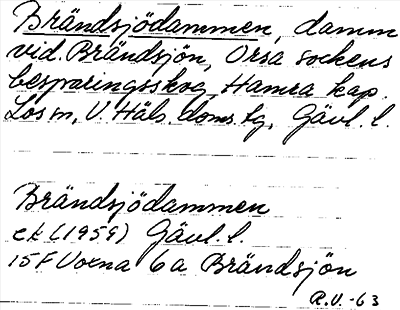 Brändsjödammen, damm
vid Brändsjön, Orsa sockens
besparingsskog, Hamra kap.
Los sn, V. Häls. doms.tg, Gävl. l.
Brändsjödammen
ek (1959) Gävl. l.
15F Voxna 6a Brändsjön
R.V. -63